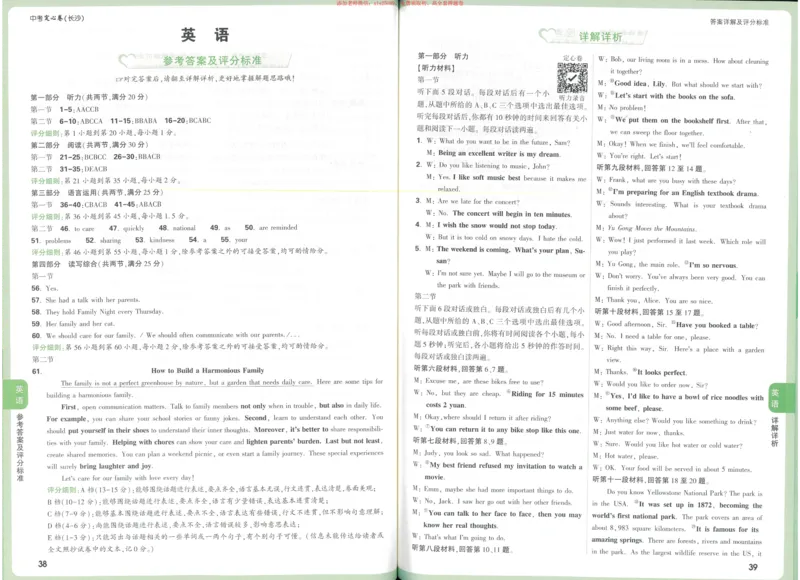 中考定心卷(长沙)
英 语
参考答案及评分标准
对完答案后,请翻至详解详析,更好地掌握解题思路哦!
第一部分 听力(共两节,满分20分)
第一节 1-5:AACCB
第二节 6-10:ABCCA 11-15:BBABA 16-20:BCABC
评分细则:第1小题到第20小题,每小题1分。
第二部分 阅读(共两节,满分30分)
第一节 21-25:BCBCC 26-30:BBACB
第二节 31-35:DEACB
评分细则:第21小题到第35小题,每小题2分。
第三部分 语言运用(共两节,满分25分)
第一节 36-40:CBACB 41-45:ABACB
评分细则:第36小题到第45小题,每小题1.5分。
第二节 46. to care 47. quickly 48. national 49. as 50. are reminded
51. problems 52. sharing 53. kindness 54. a 55. your
评分细则:第46小题到第55小题,每小题1分,除参考答案之外的可接受答案,均可酌情给分。
第四部分 读写综合(共两节,满分25分)
第一节
56. Yes.
57. She had a talk with her parents.
58. They hold Family Night every Thursday.
59. Her family and her cat.
60. We should care for our family. / We should often communicate with our parents./...
评分细则:第56小题到第60小题,每小题2分,除参考答案之外的可接受答案,均可酌情给分。
第二节
61. How to Build a Harmonious Family
The family is not a perfect greenhouse by nature, but a garden that needs daily care. Here are some tips for
building a harmonious family.
First, open communication matters. Talk to family members not only when in trouble, but also in daily life.
For example, you can share your school stories or funny jokes. Second, learn to understand each other. You
should put yourself in their shoes to understand their inner thoughts. Moreover, it's better to share responsibili-
ties with your family. Helping with chores can show your care and lighten parents' burden. Last but not least,
create shared memories. You can plan a weekend picnic, or even start a family journey. These special experiences
will surely bring laughter and joy.
Let's care for our family with love every day!
评分细则:A档(13-15分):能够围绕话题进行表达,要点齐全,语言基本无误,行文连贯,表达清楚,卷面美观;
B档(10-12分):能够围绕话题进行表达,要点齐全,语言有少量错误,表达基本连贯清楚;
C档(7-9分):能够基本围绕话题进行表达,要点不全,语言表达有些错误,行文不连贯,但不影响句意理解;
D档(4-6分):尚能围绕话题进行表达,要点不全,语言错误较多,影响意思表达;
E档(1-3分):只能写出与话题相关的一些单词或一两个句子,有个别句子可懂。(信息未能传达给读者或
全文照抄试卷中的文本,记0分。)
英语
参考答案及评分标准
38
答案详解及评分标准
详解详析
第一部分 听力
【听力材料】
定心卷
听力录音
第一节
听下面5段对话。每段对话后有一个小
题,从题中所给的A、B、C三个选项中选出最佳选项。
听完每段对话后,你都有10秒钟的时间来回答有关小
题和阅读下一小题。每段对话读两遍。
1. W: What do you want to be in the future, Sam?
M: Being an excellent writer is my dream.
2. W: Do you like listening to music, John?
M: Yes. I like soft music best because it makes me
relaxed.
3. M: Are we late for the concert?
W: No. The concert will begin in ten minutes.
4. M: I wish the snow would not stop today.
W: But it is too cold on snowy days. I hate the cold.
5. M: The weekend is coming. What's your plan, Su-
san?
W: I'm not sure yet. Maybe I will go to the museum or
the park with friends.
第二节
听下面6段对话或独白。每段对话或独白后有几个小
题,从题中所给的A、B、C三个选项中选出最佳选项。
听每段对话或独白前,你将有时间阅读各个小题,每小
题5秒钟;听完后,各小题将给出5秒钟的作答时间。
每段对话或独白读两遍。
听第六段材料,回答第6、7题。
M: Excuse me, are these bikes free to use?
W: No, but they are cheap. ⑥Riding for 15 minutes
costs 2 yuan.
M: Okay, where should I return it after riding?
W: ⑦You can return it to any bike stop like this one.
听第七段材料,回答第8、9题。
M: Judy, you look so sad. What happened?
W: ⑧My best friend refused my invitation to watch a
movie.
M: Emm, maybe she had more important things to do.
W: No, Jack. I saw her go out with her other friends.
M: ⑨You can talk to her face to face, then you may
know her real thoughts.
W: That's what I'm going to do.
听第八段材料,回答第10、11题。
W: Bob, our living room is in a mess. How about cleaning
it together?
M: ⑩Good idea, Lily. But what should we start with?
W: ⑩Let's start with the books on the sofa.
M: No problem!
W: ⑪We put them on the bookshelf first. After that,
we can sweep the floor together.
M: Okay! When we finish, we'll feel comfortable.
W: You're right. Let's start!
听第九段材料,回答第12至14题。
W: Frank, what are you busy with these days?
M: ⑫I'm preparing for an English textbook drama.
W: Sounds interesting. What is your textbook drama
about?
M: Yu Gong Moves the Mountains.
W: Wow! I just performed it last week. Which role will
you play?
M: Yu Gong, the main role. ⑬I'm so nervous.
W: Don't worry. You've always been very good. You can
finish it perfectly.
M: Thank you, Alice. You are so nice.
听第十段材料,回答第15至17题。
W: Good afternoon, Sir. ⑮Have you booked a table?
M: No. I need a table for one, please.
W: Right this way, Sir. Here's a place with a garden
view.
M: Thanks. ⑯It looks perfect.
W: Would you like to order now, Sir?
M: ⑰Yes, I'd like to have a bowl of rice noodles with
some beef, please.
W: Anything else? Would you like something to drink?
M: Just water for now, thanks.
W: Sure. Would you like hot water or cold water?
M: Hot water, please.
W: OK. Your food will be served in about 5 minutes.
听第十一段材料,回答第18至20题。
Do you know Yellowstone National Park? The park is
in the USA. ⑱It was set up in 1872, becoming the
world's first national park. The park covers an area of
about 8,983 square kilometers. ⑲It is famous for its
amazing springs. There are forests, rivers and mountains
in the park. As the largest wildlife reserve in the US, it
英语
详解详析
39